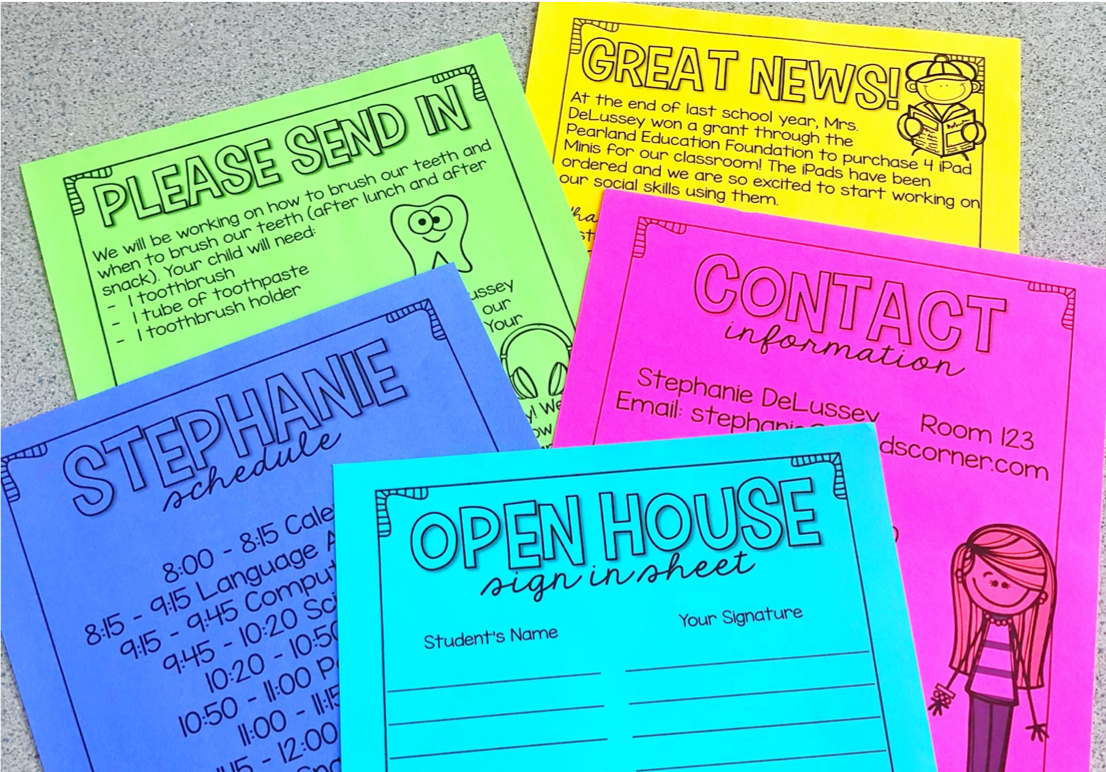 PLEASE SEND IN
We will be working on how to brush our teeth and
when to brush our teeth (after lunch and after
snack). Your child will need:
- 1 toothbrush
- 1 tube of toothpaste
- 1 toothbrush holder
our
Your
GREAT NEWS!
At the end of last school year, Mrs.
DeLussey won a grant through the
Pearland Education Foundation to purchase 4 iPad
Minis for our classroom! The iPads have been
ordered and we are so excited to start working on
our social skills using them.
CONTACT
information
Stephanie DeLussey Room 123
Email: stephanie
dscorner.com
STEPHANIE
schedule
8:00 - 8:15 Cale
8:15 - 9:15 Language A
9:15 - 9:45 Comput
9:45 - 10:20 Sci
10:20 - 10:50
10:50 - 11:00
11:00 - 11:15
12:00
OPEN HOUSE
sign in sheet
Student's Name Your Signature